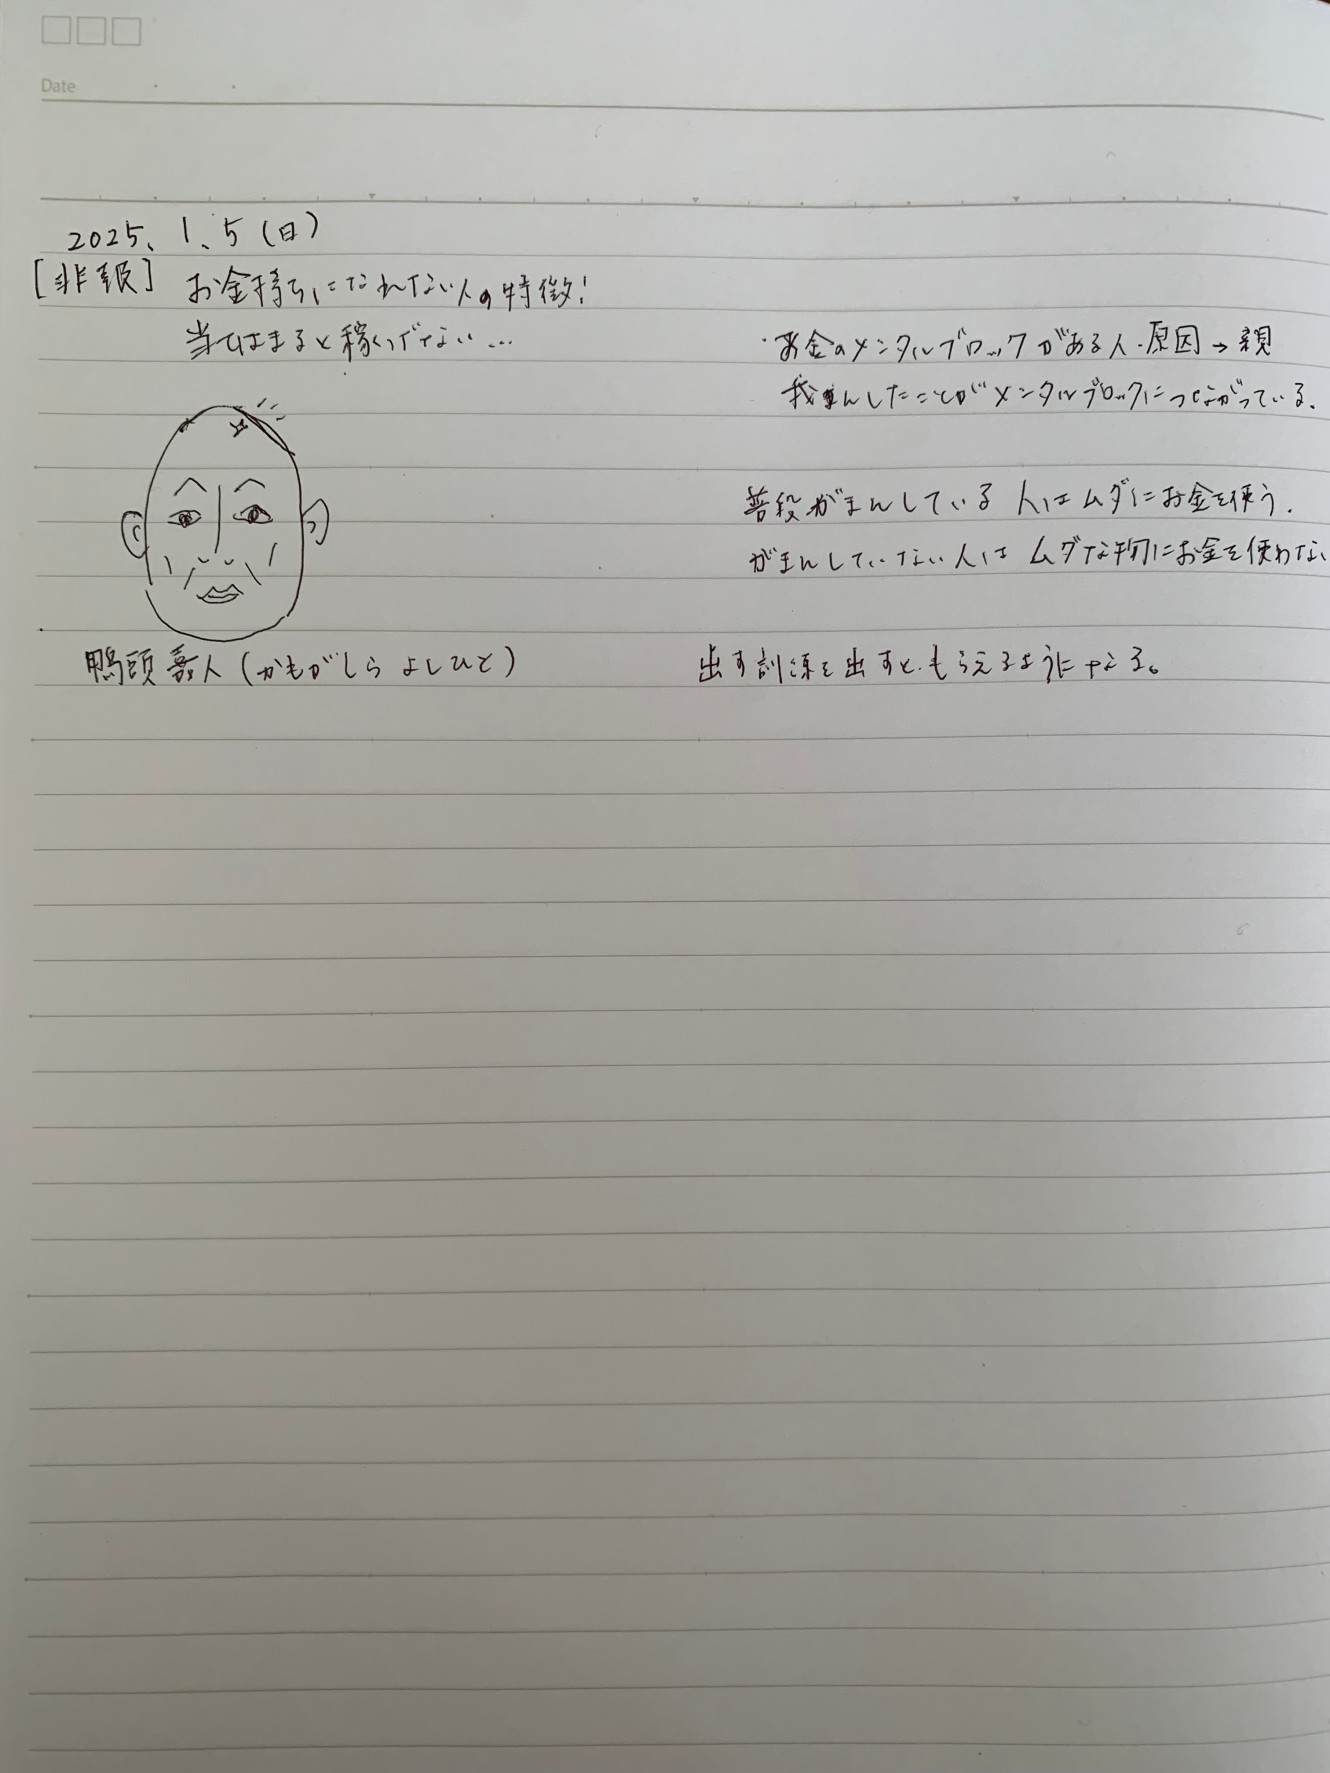 Date
2025、1、5(日)
[非報] お金持ちになれない人の特徴!
当てはまると稼げない…
・お金のメンタルブロックがある人・原因→親
我まんしたことがメンタルブロックにつながっている。
普段がまんしている人はムダにお金を使う.
がまんしていない人はムダな物にお金を使わない
鴨頭 嘉人(かもがしら よしひと)
出す訓練を出すと、もらえるようになる。